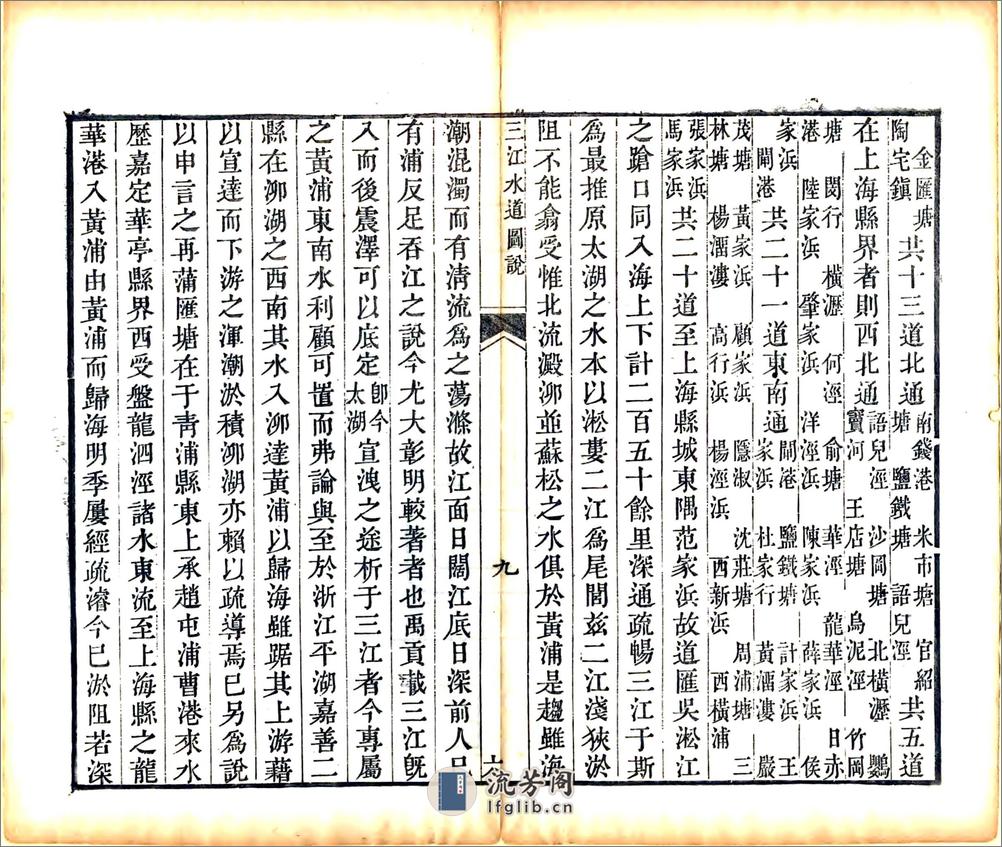 金匯塘
陶宅鎮
共十三道北通
南錢港 米市塘 官紹
塘 鹽鐵塘 語兒涇
共五道
在上海縣界者則西北通
語兒涇 沙岡塘 北橫瀝 鸚
竇河 王店塘 烏泥涇 竹岡
塘 閔行 橫瀝 何涇 俞塘 華涇 龍華涇 日赤
港 陸家浜 肇家浜 洋涇浜 陳家浜 薛家浜 侯
家浜
閘港
共二十一道東南通
閘港 鹽鐵塘 計家浜 王
家浜 杜家行 黃溷漊 嚴
茂塘 黃家浜 顧家浜 隱淑 沈莊塘 周浦塘 三
林塘 楊溜漊 高行浜 楊涇浜 西新浜 西橫浦
張家浜
馬家浜
共二十道至上海縣城東隅范家浜故道匯吳淞江
之蹌口同入海上下計二百五十餘里深通疏暢三江于斯
爲最推原太湖之水本以淞婁二江爲尾閭茲二江淺狹淤
阻不能翕受惟北流澱泖並蘇松之水俱於黃浦是趨雖海
三江水道圖說
九
潮混濁而有清流爲之蕩滌故江面日闊江底日深前人已
有浦反足吞江之說今尤大彰明較著者也禹貢載三江旣
入而後震澤可以底定
卽今
太湖
宣洩之途析于三江者今專屬
之黃浦東南水利顧可置而弗論與至於浙江平湖嘉善二
縣在泖湖之西南其水入泖達黃浦以歸海雖踞其上游藉
以宣達而下游之渾潮淤積泖湖亦賴以疏導焉已另爲說
以申言之再蒲匯塘在于青浦縣東上承趙屯浦曹港來水
歷嘉定華亭縣界西受盤龍泗涇諸水東流至上海縣之龍
華港入黃浦由黃浦而歸海明季屢經疏濬今已淤阻若深
流芳阁
lfglib.cn